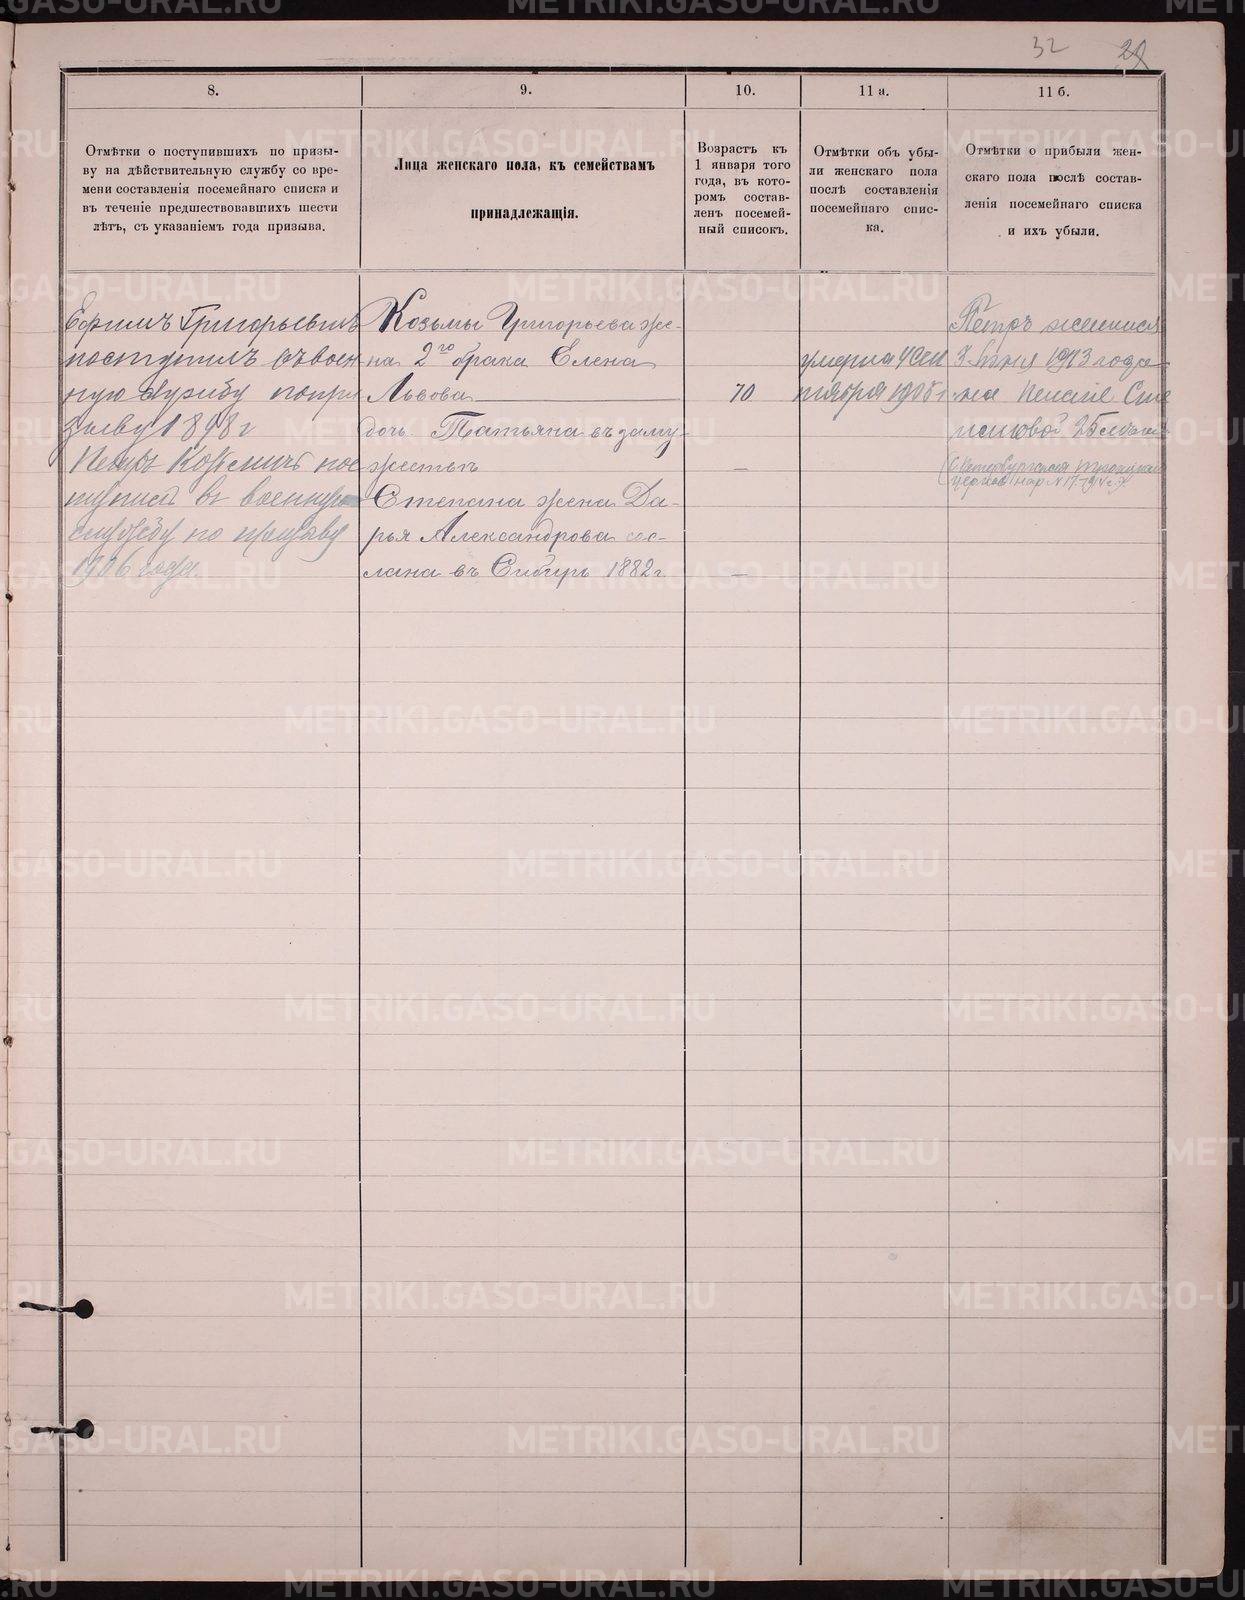 32 29
8.
9.
10.
11 а.
11 б.
Отмѣтки о поступившихъ по призы-
ву на дѣйствительную службу со вре-
мени составленія посемейнаго списка и
въ теченіе предшествовавшихъ шести
лѣтъ, съ указаніемъ года призыва.
Лица женскаго пола, къ семействамъ
принадлежащія.
Возрастъ къ
1 января того
года, въ кото-
ромъ состав-
ленъ посемей-
ный списокъ.
Отмѣтки объ убы-
ли женскаго пола
послѣ составленія
посемейнаго спис-
ка.
Отмѣтки о прибыли жен-
скаго пола послѣ состав-
ленія посемейнаго списка
и ихъ убыли.
Ефимъ Григорьевичъ
поступилъ въ воен
ную службу попри
зыву 1898 г
Петръ Козьмичъ пос
тупилъ въ военную
службу по призыву
1906 года.
Козьмы Григорьева же-
на 2го брака Елена
Львова
дочь Татьяна въ заму-
жестве
Степана жена Да-
рья Александрова сос-
лана въ Сибирь 1882 г.
70
—
—
умерла 4 Сен
тября 1908 г.
Петръ женился
3 Июня 1913 года
на Сте
пановой 25
METRIKI.GASO-URAL.RU